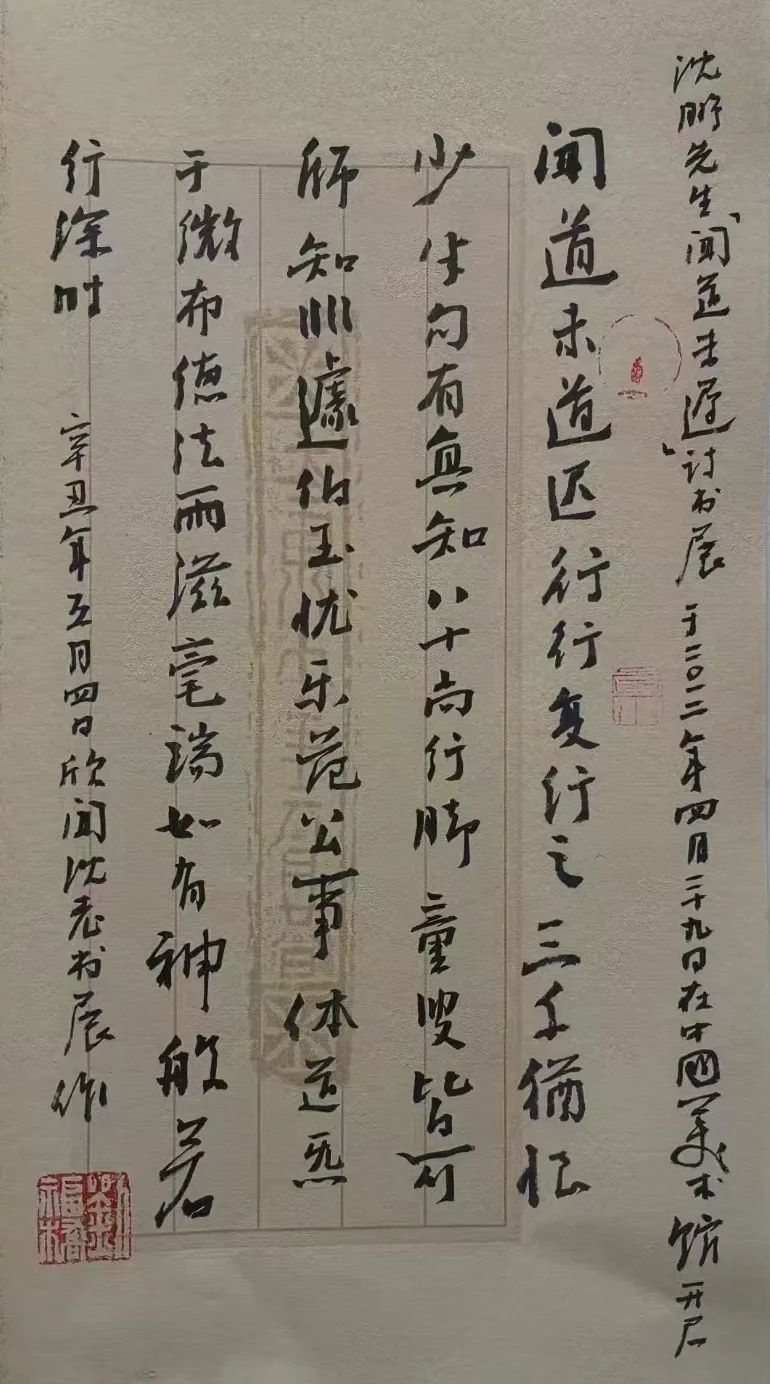 沈鹏先生「闻道未遲」诗书展 于二〇二二年四月二十九日在中國美术馆开启
闻道未道迟行行复行之三千猶恨
少半句有無知八十尚行脚童叟皆可
师知非蘧伯玉忧乐范公事体道
于微布德法雨滋毫端如有神般若
行深时 辛丑年五月四日欣闻沈老书展作